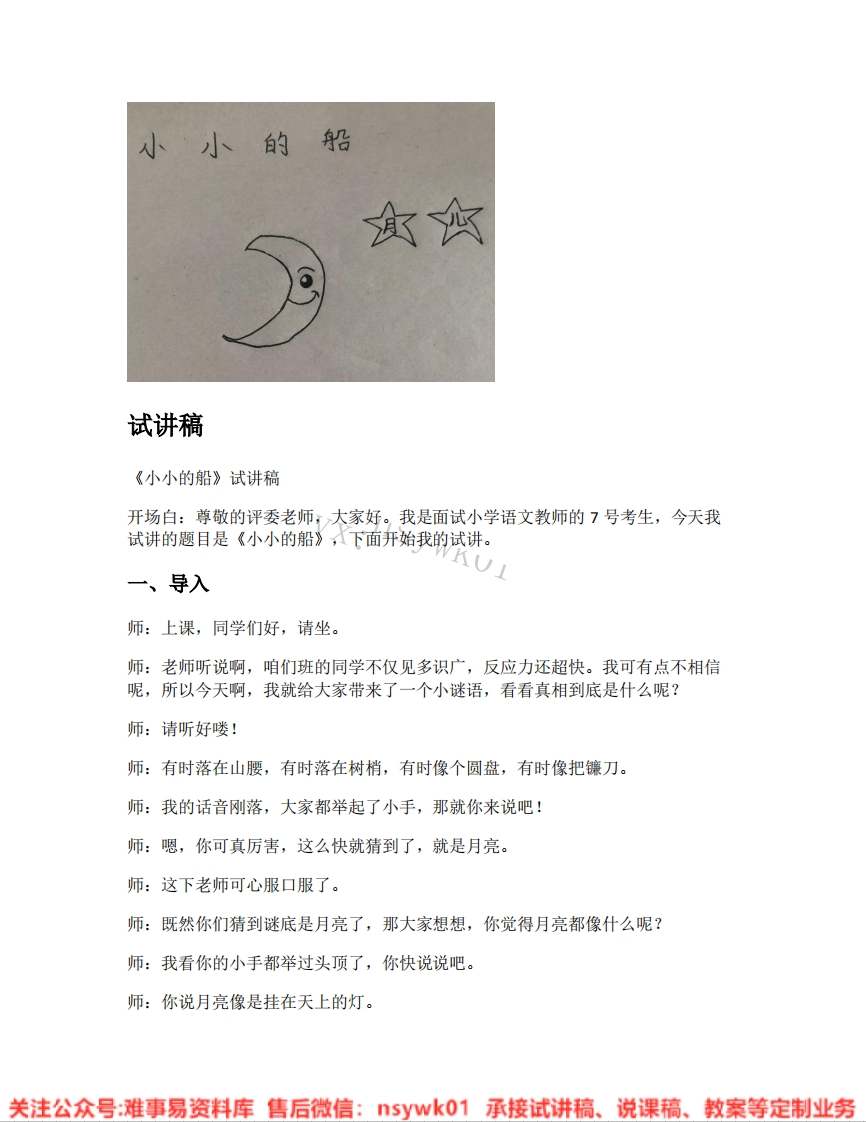 小小的船
月 儿
试讲稿
《小小的船》试讲稿
开场白：尊敬的评委老师，大家好。我是面试小学语文教师的 7 号考生，今天我
试讲的题目是《小小的船》，下面开始我的试讲。
一、导入
师：上课，同学们好，请坐。
师：老师听说啊，咱们班的同学不仅见多识广，反应力还超快。我可有点不相信
呢，所以今天啊，我就给大家带来了一个小谜语，看看真相到底是什么呢？
师：请听好喽！
师：有时落在山腰，有时落在树梢，有时像个圆盘，有时像把镰刀。
师：我的话音刚落，大家都举起了小手，那就你来说吧！
师：嗯，你可真厉害，这么快就猜到了，就是月亮。
师：这下老师可心服口服了。
师：既然你们猜到谜底是月亮了，那大家想想，你觉得月亮都像什么呢？
师：我看你的小手都举过头顶了，你快说说吧。
师：你说月亮像是挂在天上的灯。
关注公众号:难事易资料库 售后微信：nsywk01 承接试讲稿、说课稿、教案等定制业务